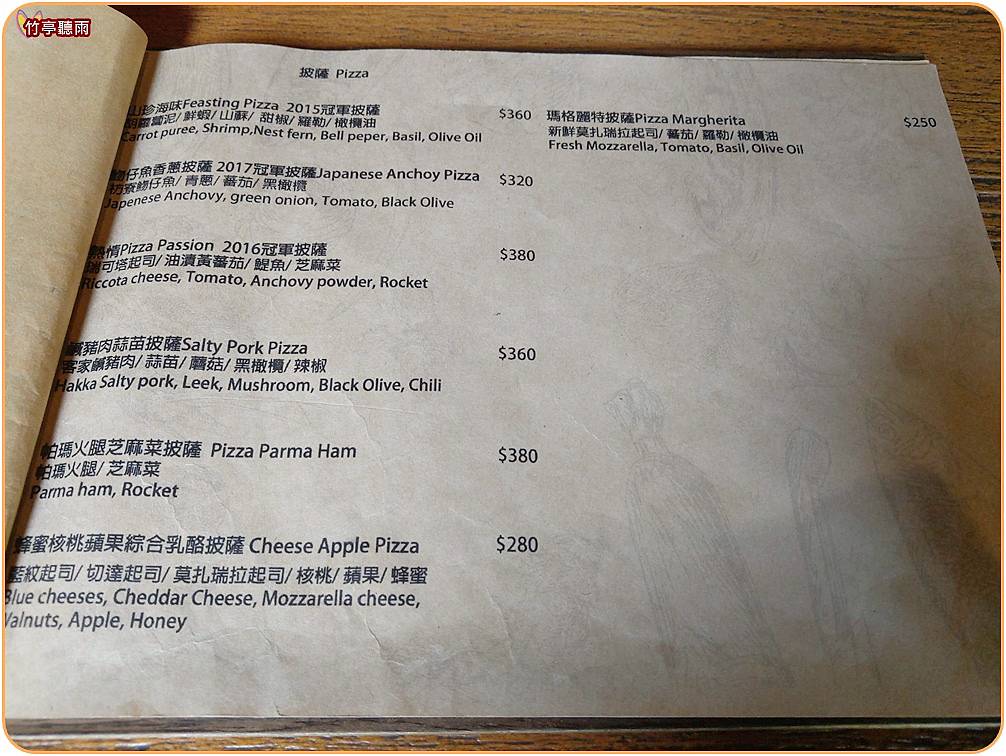 竹亭聽雨
披薩 Pizza
山珍海味Feasting Pizza 2015冠軍披薩 $360
胡蘿蔔泥/ 鮮蝦/ 山蘇/ 甜椒/ 羅勒/ 橄欖油
Carrot puree, Shrimp,Nest fern, Bell peper, Basil, Olive Oil
魩仔魚香蔥披薩 2017冠軍披薩Japanese Anchoy Pizza $320
枋寮魩仔魚/ 青蔥/ 蕃茄/ 黑橄欖
Japenese Anchovy, green onion, Tomato, Black Olive
熱情Pizza Passion 2016冠軍披薩 $380
瑞可塔起司/ 油漬黃蕃茄/ 鯷魚/ 芝麻菜
Riccota cheese, Tomato, Anchovy powder, Rocket
鹹豬肉蒜苗披薩Salty Pork Pizza $360
客家鹹豬肉/ 蒜苗/ 蘑菇/ 黑橄欖/ 辣椒
Hakka Salty pork, Leek, Mushroom, Black Olive, Chili
帕瑪火腿芝麻菜披薩 Pizza Parma Ham $380
帕瑪火腿/ 芝麻菜
Parma ham, Rocket
蜂蜜核桃蘋果綜合乳酪披薩 Cheese Apple Pizza $280
藍紋起司/ 切達起司/ 莫扎瑞拉起司/ 核桃/ 蘋果/ 蜂蜜
Blue cheeses, Cheddar Cheese, Mozzarella cheese,
Walnuts, Apple, Honey
瑪格麗特披薩Pizza Margherita $250
新鮮莫扎瑞拉起司/ 蕃茄/ 羅勒/ 橄欖油
Fresh Mozzarella, Tomato, Basil, Olive Oil